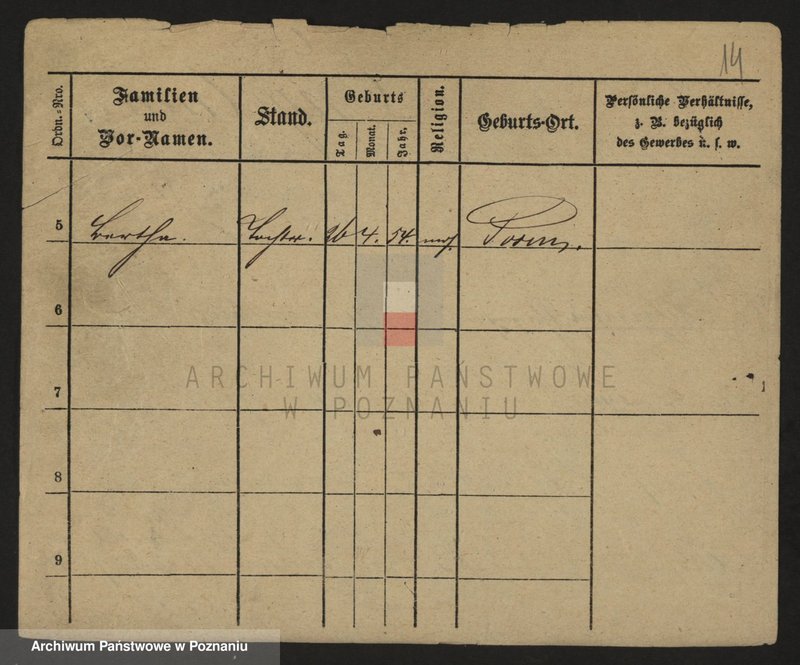 14
Ordn.-Nro. Familien und Vor-Namen. Stand. Geburts Tag. Monat. Jahr. Religion. Geburts-Ort. Persönliche Verhältnisse, z. B. bezüglich des Gewerbes u. s. w.
5 Bertha. Tochter. 26 4. 54. Posen.
6
7
8
9
ARCHIWUM PAŃSTWOWE
W POZNANIU
Archiwum Państwowe w Poznaniu